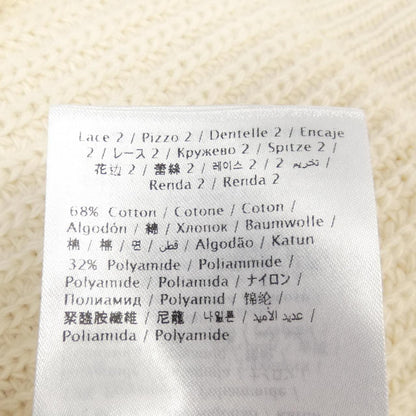 Lace 2 / Pizzo 2 / Dentelle 2 / Encaje
2 / レース 2 / Кружево 2 / Spitze 2 /
花边 2 / 蕾絲 2 / 레이스 2 / 2 تخريم /
Renda 2 / Renda 2
68% Cotton / Cotone / Coton /
Algodón / 綿 / Хлопок / Baumwolle /
棉 / 棉 / 면 / قطن / Algodão / Katun
32% Polyamide / Poliammide /
Polyamide / Poliamida / ナイロン /
Полиамид / Polyamid / 锦纶 /
聚醯胺纖維 / 尼龍 / 나일론 / عديد الأميد /
Poliamida / Polyamide